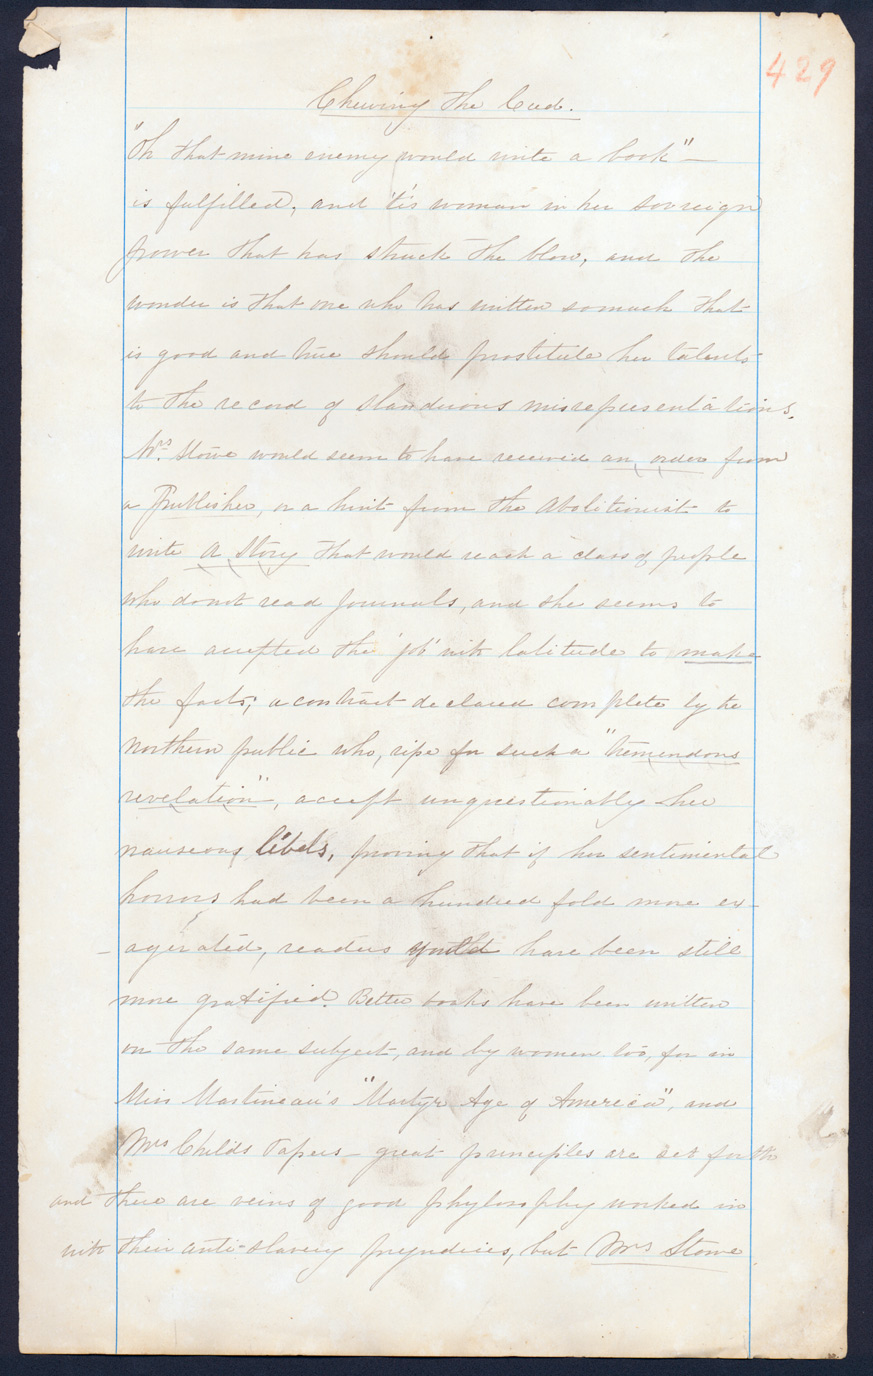 429
Chewing the Cud.
"Oh that mine enemy would write a book" —
is fulfilled, and 'tis woman in her sovreign
power that has struck the blow, and the
wonder is that one who has written somuch that
is good and true should prostitute her talents
to the record of slanderous misrepresentations.
Mrs. Stowe would seem to have received an order from
a Publisher, or a hint from the Abolitionist to
write a Story that would reach a class of people
who donot read Journals, and she seems to
have accepted the 'job' with latitude to make
the facts; a contract declared complete by the
northern public who, ripe for such a "tremendous
revelation", accept unquestionably her
nauseous libels, proving that if her sentimental
horrors had been a hundred fold more ex-
-agerated, readers would have been still
more gratified. Better books have been written
on the same subject, and by women too, for in
Miss Martineau's "Martyr Age of America", and
Mrs Childs Papers - great principles are set forth
and there are veins of good phylosophy worked in
with their anti-slavery prejudices, but Mrs Stowe